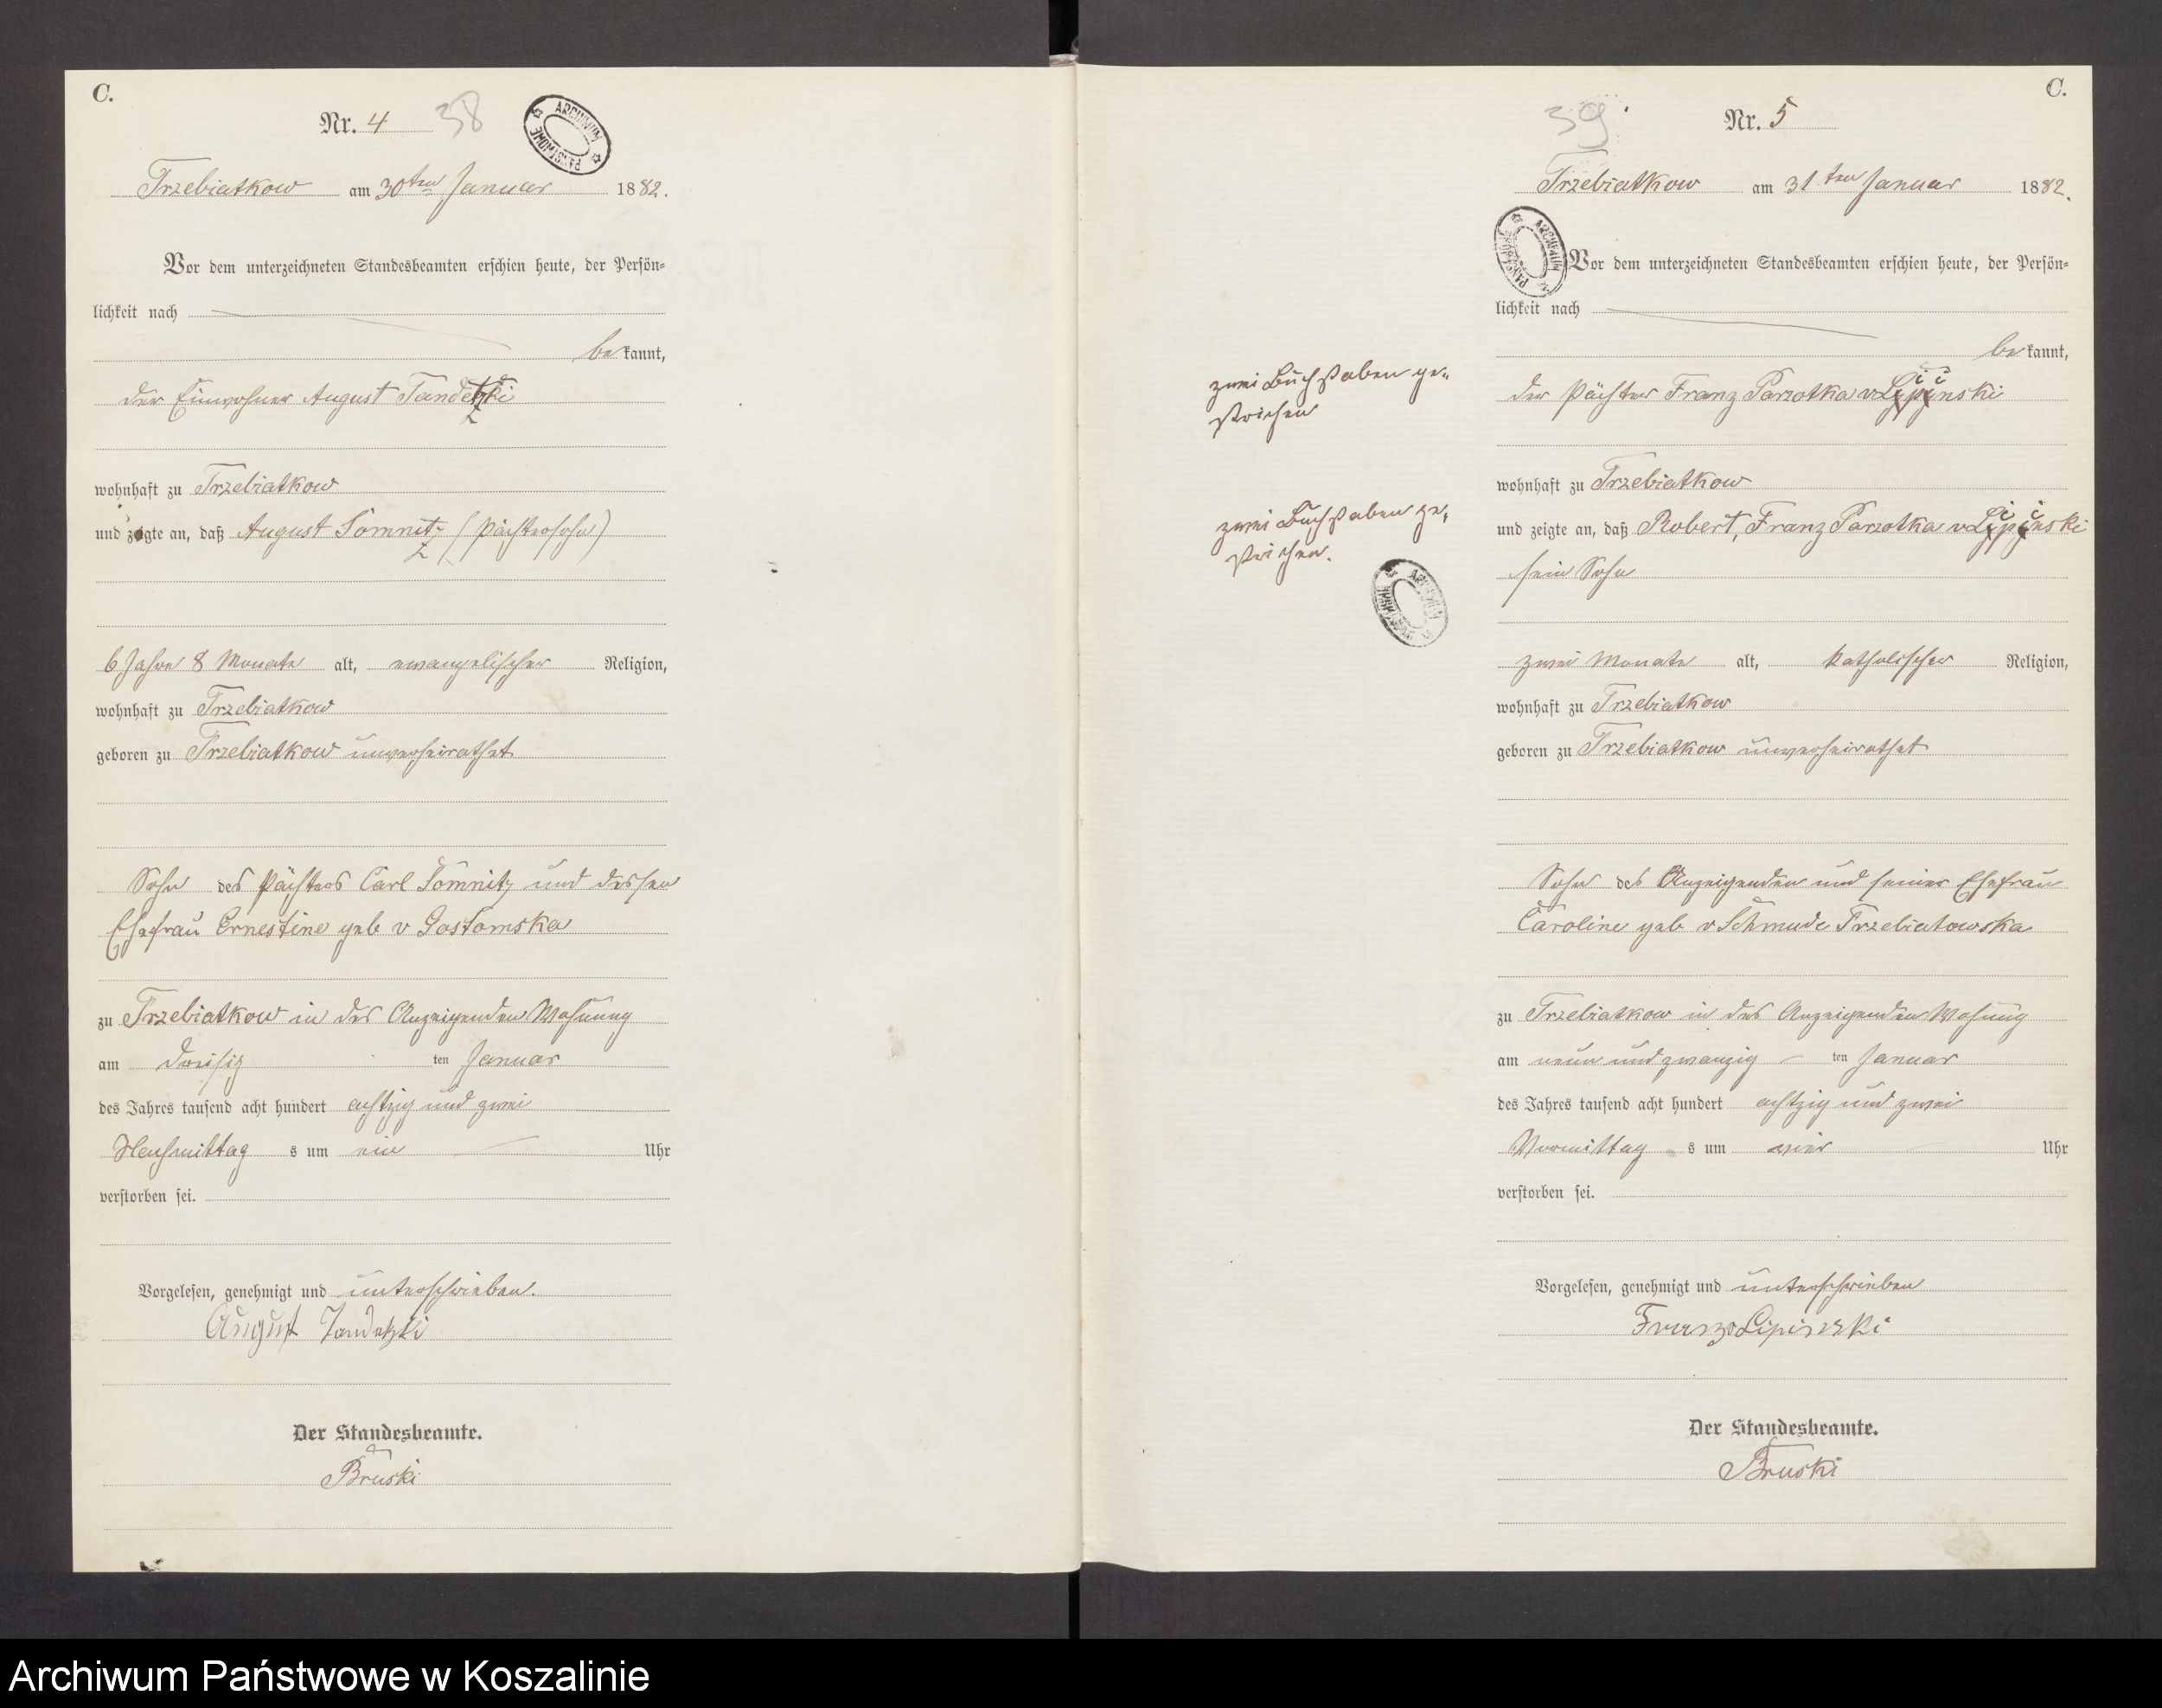 C.
Nr. 4 38
ARCHIWUM PAŃSTWOWE
Trzebiatkow am 30ten Januar 1882.
Vor dem unterzeichneten Standesbeamten erschien heute, der Persön=
lichkeit nach
be kannt,
der Einwohner August Tandetzki
wohnhaft zu Trzebiatkow
und zeigte an, daß August Somnitz (Pächtersohn)
6 Jahre 8 Monate alt, evangelischer Religion,
wohnhaft zu Trzebiatkow
geboren zu Trzebiatkow unverheirathet
Sohn des Pächters Carl Somnitz und dessen
Ehefrau Ernestine geb v Gostomska
zu Trzebiatkow in des Anzeigenden Wohnung
am dreißig ten Januar
des Jahres tausend acht hundert achtzig und zwei
Nachmittag s um ein Uhr
verstorben sei.
Vorgelesen, genehmigt und unterschrieben.
August Tandetzki
Der Standesbeamte.
Bruski
C.
39 Nr. 5
Trzebiatkow am 31ten Januar 1882.
ARCHIWUM PAŃSTWOWE
Vor dem unterzeichneten Standesbeamten erschien heute, der Persön=
lichkeit nach
be kannt,
zwei Buchstaben ge=
strichen
der Pächter Franz Parzotka v Lipinski
wohnhaft zu Trzebiatkow
zwei Buchstaben ge=
strichen.
ARCHIWUM PAŃSTWOWE
und zeigte an, daß Robert, Franz Parzotka v Lipinski
sein Sohn
zwei Monate alt, katholischer Religion,
wohnhaft zu Trzebiatkow
geboren zu Trzebiatkow unverheirathet
Sohn des Anzeigenden und seiner Ehefrau
Caroline geb v Schmude Trzebiatowska
zu Trzebiatkow in des Anzeigenden Wohnung
am neun und zwanzig ten Januar
des Jahres tausend acht hundert achtzig und zwei
Vormittag s um vier Uhr
verstorben sei.
Vorgelesen, genehmigt und unterschrieben
Franz v Lipinski
Der Standesbeamte.
Bruski
Archiwum Państwowe w Koszalinie